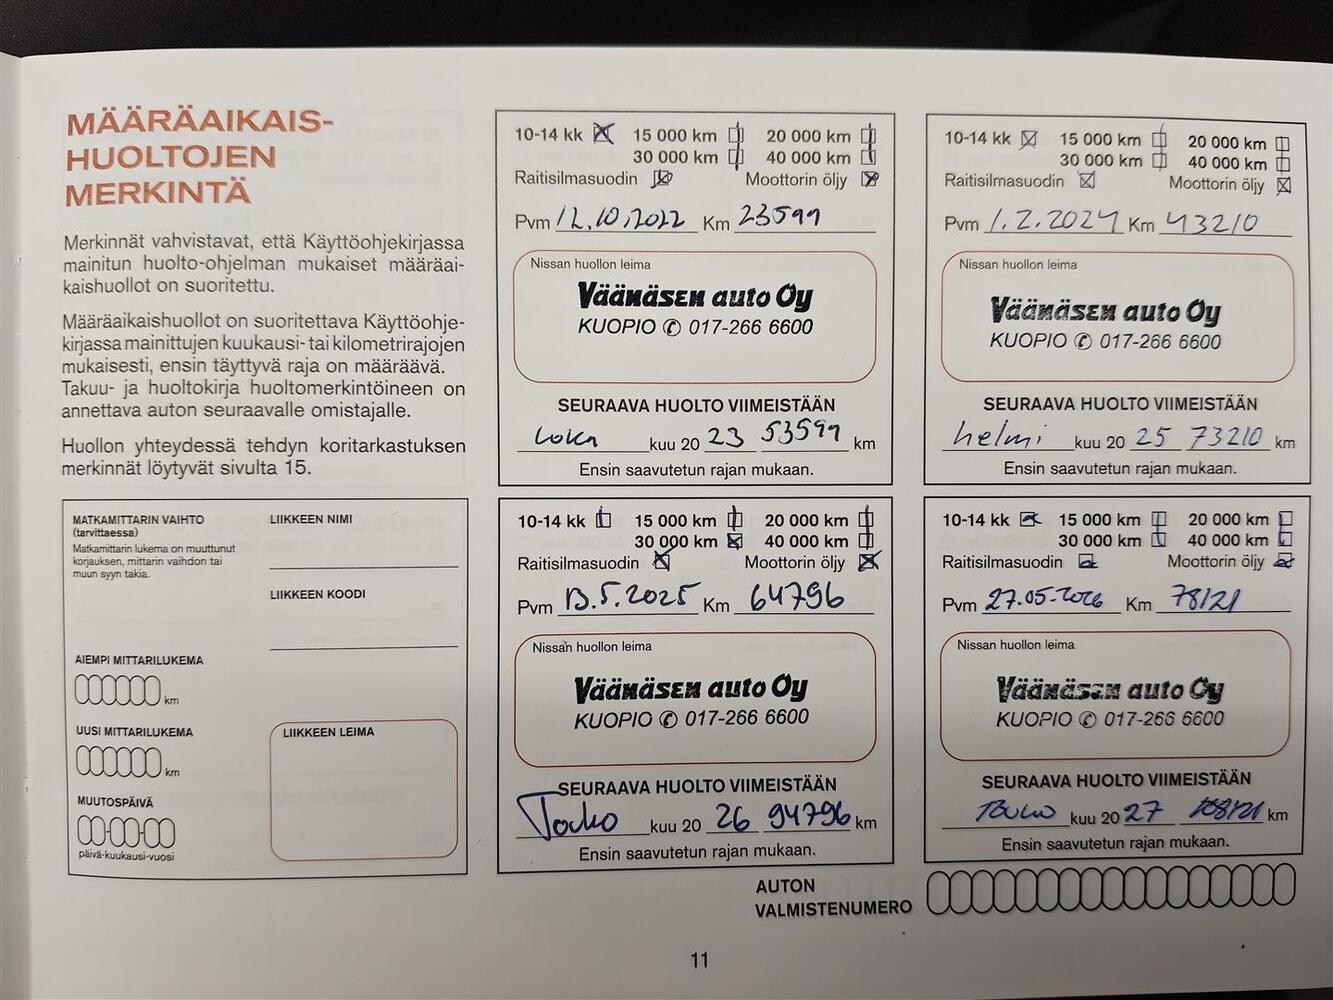 MÄÄRÄAIKAIS-
HUOLTOJEN
MERKINTÄ
Merkinnät vahvistavat, että Käyttöohjekirjassa
mainitun huolto-ohjelman mukaiset määräai-
kaishuollot on suoritettu.
Määräaikaishuollot on suoritettava Käyttöohje-
kirjassa mainittujen kuukausi- tai kilometrirajojen
mukaisesti, ensin täyttyvä raja on määräävä.
Takuu- ja huoltokirja huoltomerkintöineen on
annettava auton seuraavalle omistajalle.
Huollon yhteydessä tehdyn koritarkastuksen
merkinnät löytyvät sivulta 15.
MATKAMITTARIN VAIHTO
(tarvittaessa)
Matkamittarin lukema on muuttunut
korjauksen, mittarin vaihdon tai
muun syyn takia.
LIIKKEEN NIMI
LIIKKEEN KOODI
AIEMPI MITTARILUKEMA
km
UUSI MITTARILUKEMA
km
MUUTOSPÄIVÄ
päivä-kuukausi-vuosi
LIIKKEEN LEIMA
10-14 kk 15 000 km 20 000 km
30 000 km 40 000 km
Raitisilmasuodin Moottorin öljy
Pvm 12.10.2022 Km 23599
Nissan huollon leima
Väänäsen auto Oy
KUOPIO ✆ 017-266 6600
SEURAAVA HUOLTO VIIMEISTÄÄN
Loka kuu 20 23 53599 km
Ensin saavutetun rajan mukaan.
10-14 kk 15 000 km 20 000 km
30 000 km 40 000 km
Raitisilmasuodin Moottorin öljy
Pvm 1.2.2024 Km 43210
Nissan huollon leima
Väänäsen auto Oy
KUOPIO ✆ 017-266 6600
SEURAAVA HUOLTO VIIMEISTÄÄN
helmi kuu 20 25 73210 km
Ensin saavutetun rajan mukaan.
10-14 kk 15 000 km 20 000 km
30 000 km 40 000 km
Raitisilmasuodin Moottorin öljy
Pvm 13.5.2025 Km 64796
Nissan huollon leima
Väänäsen auto Oy
KUOPIO ✆ 017-266 6600
SEURAAVA HUOLTO VIIMEISTÄÄN
Touko kuu 20 26 94796 km
Ensin saavutetun rajan mukaan.
10-14 kk 15 000 km 20 000 km
30 000 km 40 000 km
Raitisilmasuodin Moottorin öljy
Pvm 27.05.2026 Km 78121
Nissan huollon leima
Väänäsen auto Oy
KUOPIO ✆ 017-266 6600
SEURAAVA HUOLTO VIIMEISTÄÄN
Touko kuu 20 27 108121 km
Ensin saavutetun rajan mukaan.
AUTON
VALMISTENUMERO
11